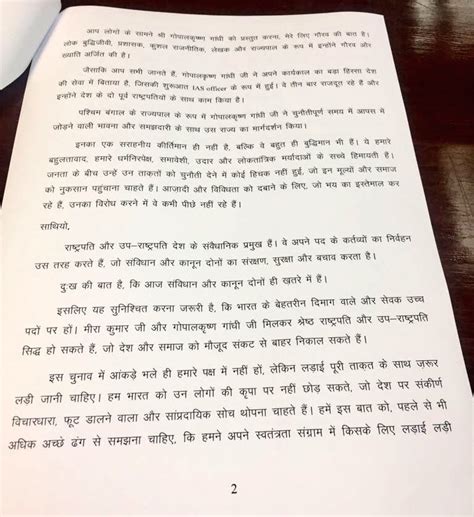 आप लोगों के सामने श्री गोपालकृष्ण गांधी को प्रस्तुत करना, मेरे लिए गौरव की बात है।
लोक बुद्धिजीवी, प्रशासक, कुशल राजनीतिक, लेखक और राज्यपाल के रूप में इन्होंने गौरव और
ख्याति अर्जित की है।
जैसाकि आप सभी जानते हैं, गोपालकृष्ण गांधी जी ने अपने कार्यकाल का बड़ा हिस्सा देश
की सेवा में बिताया है, जिसकी शुरूआत IAS officer के रूप में हुई। वे तीन बार राजदूत रहे हैं और
इन्होंने देश के दो पूर्व राष्ट्रपतियों के साथ काम किया है।
पश्चिम बंगाल के राज्यपाल के रूप में गोपालकृष्ण गांधी जी ने चुनौतीपूर्ण समय में आपस में
जोड़ने वाली भावना और समझदारी के साथ उस राज्य का मार्गदर्शन किया।
इनका एक सराहनीय कीर्तिमान ही नहीं है, बल्कि वे बहुत ही बुद्धिमान भी हैं। ये हमारे
बहुलतावाद, हमारे धर्मनिरपेक्ष, समावेशी, उदार और लोकतांत्रिक मर्यादाओं के सच्चे हिमायती हैं।
जनता के बीच उन्हें उन ताकतों को चुनौती देने में कोई हिचक नहीं हुई, जो इन मूल्यों और समाज
को नुकसान पहुंचाना चाहते हैं। आज़ादी और विविधता को दबाने के लिए, जो भय का इस्तेमाल कर
रहे हैं, उनका विरोध करने में वे कभी पीछे नहीं रहे हैं।
साथियो,
राष्ट्रपति और उप–राष्ट्रपति देश के संवैधानिक प्रमुख हैं। वे अपने पद के कर्तव्यों का निर्वहन
उस तरह करते हैं, जो संविधान और कानून दोनों का संरक्षण, सुरक्षा और बचाव करता है।
दुःख की बात है, कि आज संविधान और कानून दोनों ही खतरे में हैं।
इसलिए यह सुनिश्चित करना जरूरी है, कि भारत के बेहतरीन दिमाग वाले और सेवक उच्च
पदों पर हों। मीरा कुमार जी और गोपालकृष्ण गांधी जी मिलकर श्रेष्ठ राष्ट्रपति और उप–राष्ट्रपति
सिद्ध हो सकते हैं, जो देश और समाज को मौजूद संकट से बाहर निकाल सकते हैं।
इस चुनाव में आंकड़े भले ही हमारे पक्ष में नहीं हों, लेकिन लड़ाई पूरी ताक़त के साथ ज़रूर
लड़ी जानी चाहिए। हम भारत को उन लोगों की कृपा पर नहीं छोड़ सकते, जो देश पर संकीर्ण
विचारधारा, फूट डालने वाला और सांप्रदायिक सोच थोपना चाहते हैं। हमें इस बात को, पहले से भी
अधिक अच्छे ढंग से समझना चाहिए, कि हमने अपने स्वतंत्रता संग्राम में किसके लिए लड़ाई लड़ी
2